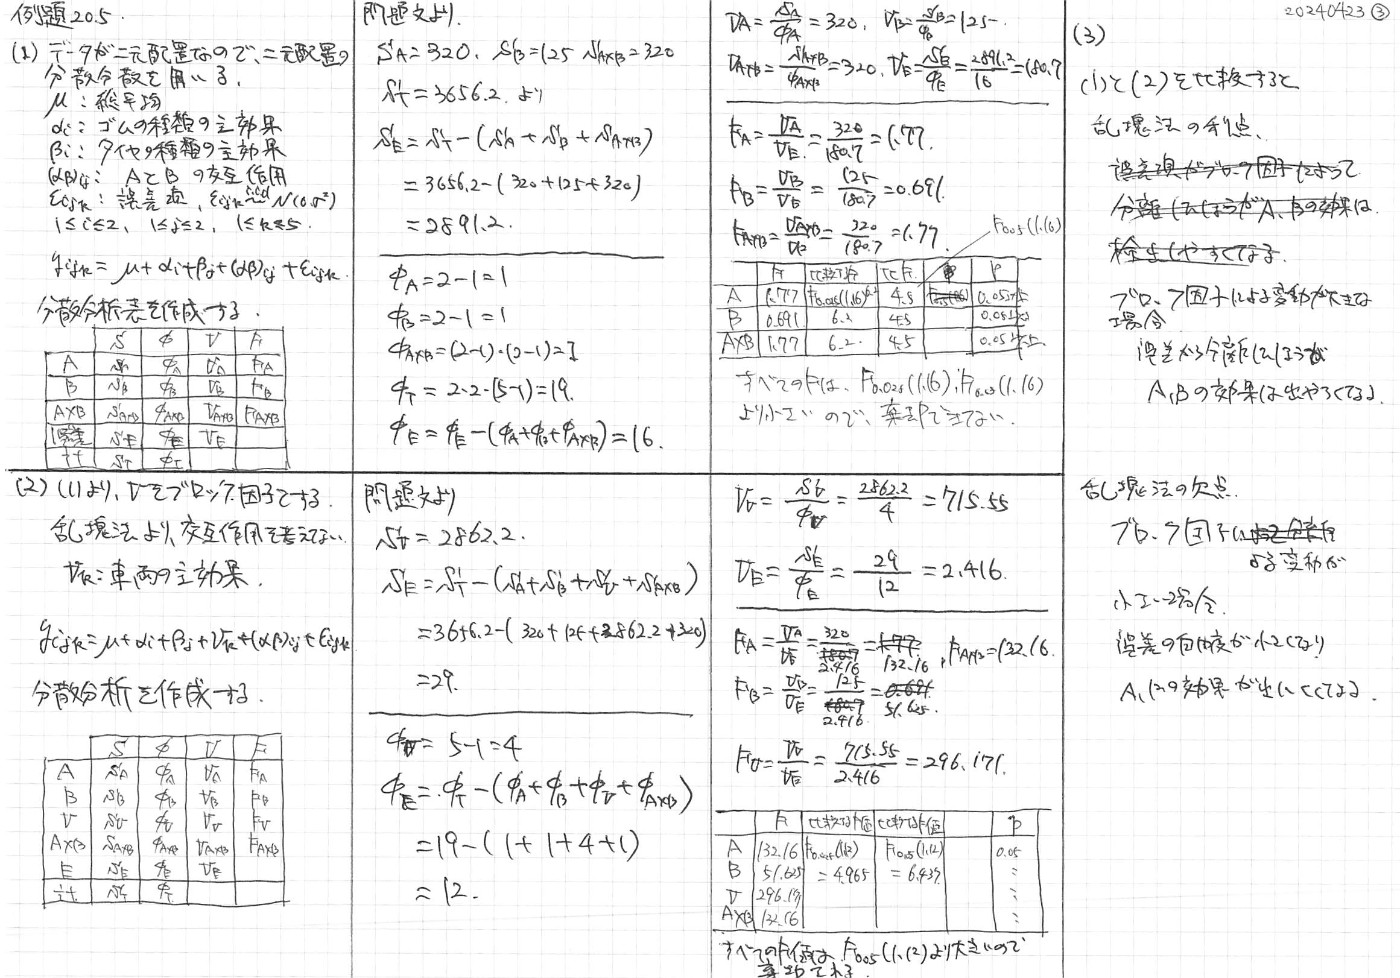 20240423 ③
例題20.5
(1) データが二元配置なので、二元配置の
分散分散を用いる。
μ : 総平均
αi : ゴムの種類の主効果
βi : タイヤの種類の主効果
(αβ)ij : AとBの交互作用
εijk : 誤差項, εijk iid N(0,σ²)
1≤i≤2, 1≤j≤2, 1≤k≤5.
yijk = μ + αi + βj + (αβ)ij + εijk.
分散分析表を作成する。
S φ V F
A SA φA VA FA
B SB φB VB FB
A×B SA×B φA×B VA×B FA×B
誤差 SE φE VE
計 ST φT
問題文より.
SA=320. SB=125 SA×B=320
ST=3656.2. より
SE=ST-(SA+SB+SA×B)
=3656.2-(320+125+320)
=2891.2.
φA=2-1=1
φB=2-1=1
φA×B=(2-1)・(2-1)=1
φT=2・2・(5-1)=19.
φE=φE-(φA+φB+φA×B)=16.
VA=SA/φA=320, VB=SB/φB=125
VA×B=SA×B/φA×B=320, VE=SE/φE=2891.2/16=180.7
FA=VA/VE=320/180.7=1.77.
FB=VB/VE=125/180.7=0.691
FA×B=VA×B/VE=320/180.7=1.77.
F0.05(1.16)
F 比較F値 比F. P
A 1.77 F0.025(1.16) 4.5 0.05
B 0.691 6.2 4.5 0.05
A×B 1.77 6.2 4.5 0.05
すべてのFは、F0.025(1.16), F0.05(1.16)
より小さいので、棄却できない.
(3)
(1)と(2)を比較すると
乱塊法の利点.
誤差項がブロック因子によって
分離したほうがA、Bの効果は
検出しやすくなる
ブロック因子による変動が大きな
場合
誤差から分離したほうが
A,Bの効果は出やすくなる.
(2) (1)より、Vをブロック因子とする.
乱塊法より、交互作用を考えない
Vk : 車両の主効果.
yijk=μ+αi+βj+Vk+(αβ)ij+εijk
分散分析を作成する.
S φ V F
A SA φA VA FA
B SB φB VB FB
V SV φV VV FV
A×B SA×B φA×B VA×B FA×B
E SE φE VE
計 ST φT
問題文より
SV=2862.2.
SE=ST-(SA+SB+SV+SA×B)
=3656.2-(320+125+2862.2+320)
=29.
φV=5-1=4
φE=φT-(φA+φB+φV+φA×B)
=19-(1+1+4+1)
=12.
VV=SV/φV=2862.2/4=715.55
VE=SE/φE=29/12=2.416.
FA=VA/VE=320/180.7 2.416=1.77 132.16, FA×B=132.16.
FB=VB/VE=125/180.7 2.416=0.691 51.625.
FV=VV/VE=715.55/2.416=296.171.
F 比較F値 比較F値 P
A 132.16 F0.025(1.12) F0.05(1.12) 0.05
B 51.625 =4.965 =6.437 :
V 296.17 :
A×B 132.16 :
すべてのF値は、F0.05(1.12)より大きいので
棄却できる.
乱塊法の欠点.
ブロック因子による変動が
小さい場合.
誤差の自由度が小さくなり
A,Bの効果が出にくくなる.